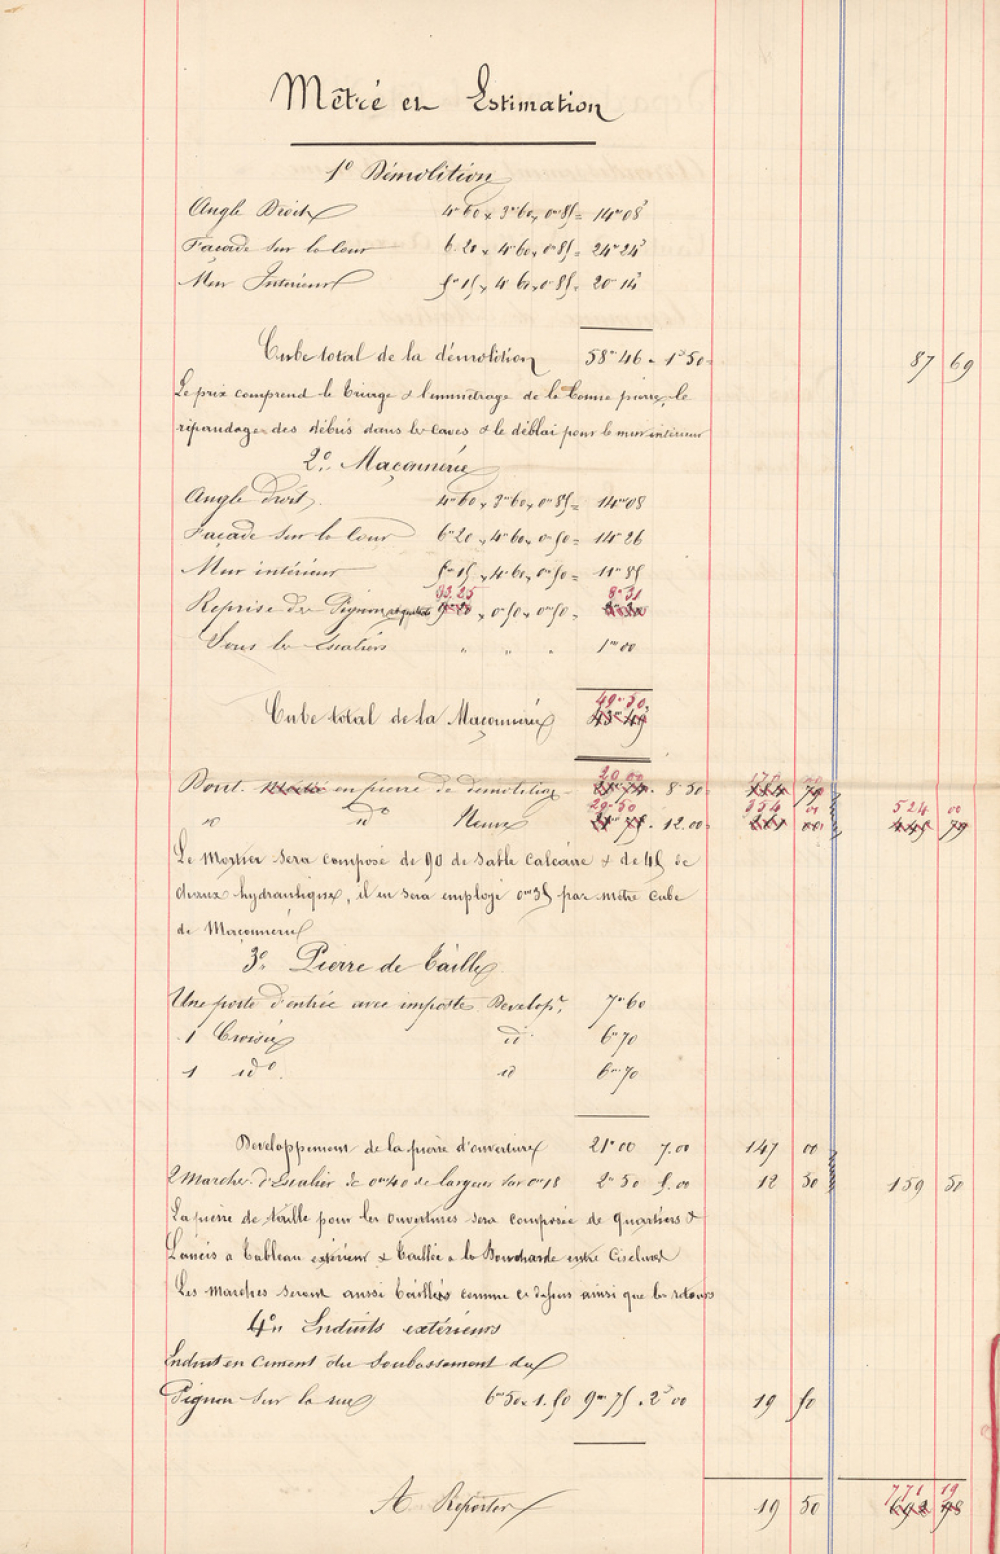 Métré et Estimation
1° Démolition
Angle Droit 4m60 x 3m60 x 0m85 = 14m08
Façade sur la Cour 6.20 x 4m60 x 0m85 = 24m24
Mur Intérieur 5m15 x 4m60 x 0m85 = 20m14
Cube total de la démolition 58m46 = 1f50 = 87 69
Le prix comprend le triage & l'emmétrage de la bonne pierre, le
répandage des débris dans les caves & le déblai pour le mur intérieur
2° Maçonnerie
Angle droit 4m60 x 3m60 x 0m85 = 14m08
Façade sur la Cour 6m20 x 4m60 x 0m50 = 14m26
Mur intérieur 5m15 x 4m60 x 0m50 = 11m85
33,25 8m31
Reprise du Pignon x 0m50 x 0m50 =
Sous les Escaliers " " " 1m00
49m50
Cube total de la Maçonnerie 43m49
20 00 170 00
Dont en pierre de démolition 8.50 =
29.50 354 00 524 00
id° id° Neuve 12.00 = 445 79
Le Mortier sera composé de 90 de sable calcaire & de 45 de
chaux hydraulique, il en sera employé 0m35 par mètre cube
de Maçonnerie
3° Pierre de taille
Une porte d'entrée avec imposte Dévelopt. 7m60
1 Croisée id 6m70
1 id° id 6m70
Développement de la pierre d'ouverture 21m00 7.00 147 00
2 Marches d'Escalier de 0m40 de largeur sur 0m18 2m50 5.00 12 50 159 50
La pierre de taille pour les ouvertures sera composée de quartiers &
Lancis à tableau extérieur & taillée à la Boucharde entre Ciselures
Les marches seront aussi taillées comme ci dessus ainsi que les retours
4° Enduits extérieurs
Enduit en ciment du Soubassement du
Pignon sur la rue 6m50 x 1.50 9m75 . 2f00 19 50
771 19
A Reporter 19 50 692 98